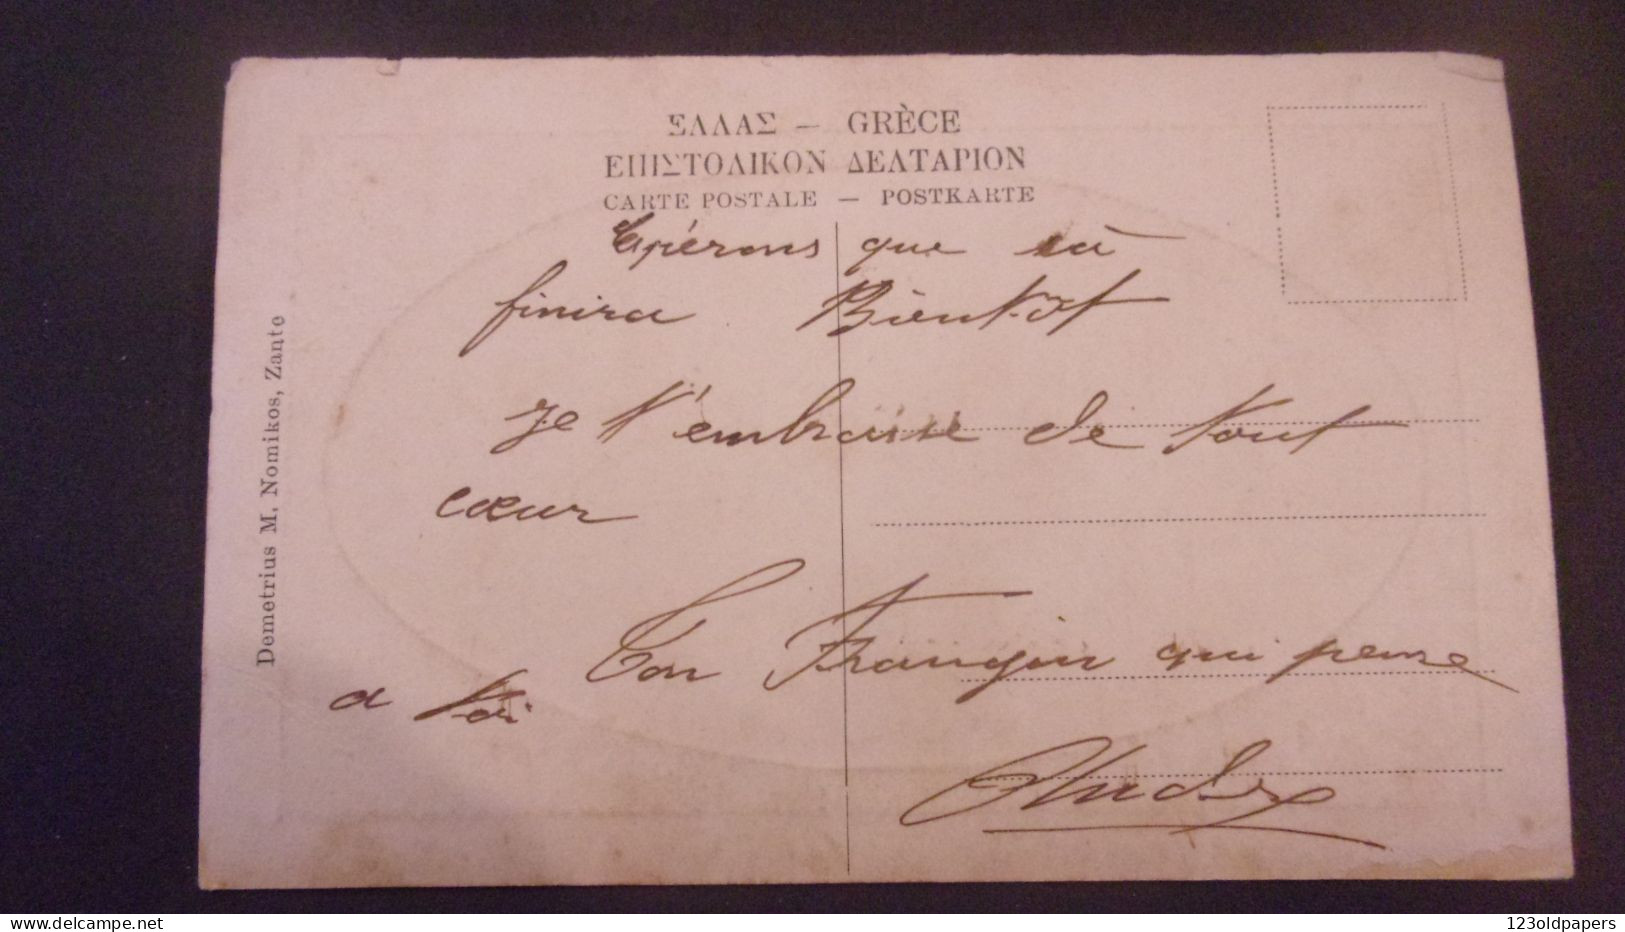 ΕΛΛΑΣ — GRÈCE
ΕΠΙΣΤΟΛΙΚΟΝ ΔΕΛΤΑΡΙΟΝ
CARTE POSTALE — POSTKARTE
Espérons que sà
finira Bientôt
Je t'embrasse de tout
cœur
Ton Frangin qui pense
a toi
André
Demetrius M. Nomikos, Zante
123oldpapers